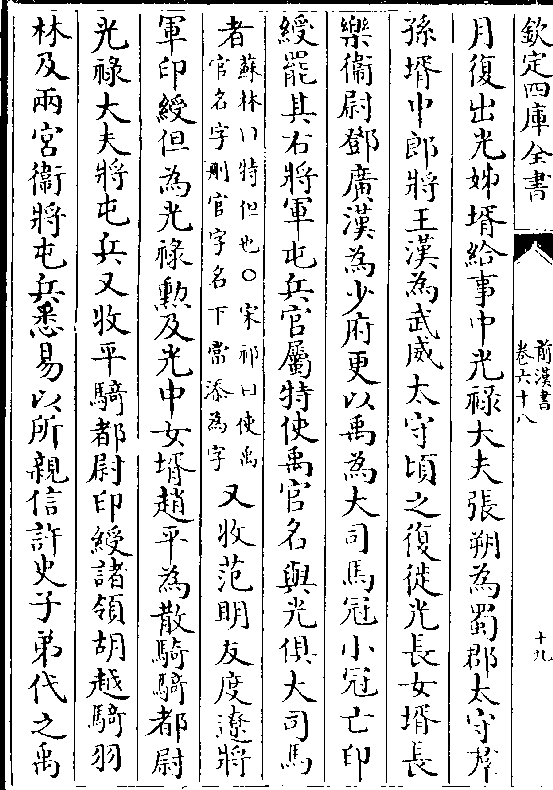 欽定四庫全書
前漢書
卷六十八
十九
月復出光姊壻給事中光祿大夫張朔為蜀郡太守羣
孫壻中郎將王漢為武威太守頃之復徙光長女壻長
樂衞尉鄧廣漢為少府更以禹為大司馬冠小冠亡印
綬罷其右將軍屯兵官屬特使禹官名與光俱大司馬
者
蘇林曰特但也○宋祁曰使禹
官名字刪官字名下當添為字
又收范明友度遼將
軍印綬但為光祿勲及光中女壻趙平為散騎騎都尉
光祿大夫將屯兵又收平騎都尉印綬諸領胡越騎羽
林及兩宮衞將屯兵悉易以所親信許史子弟代之禹